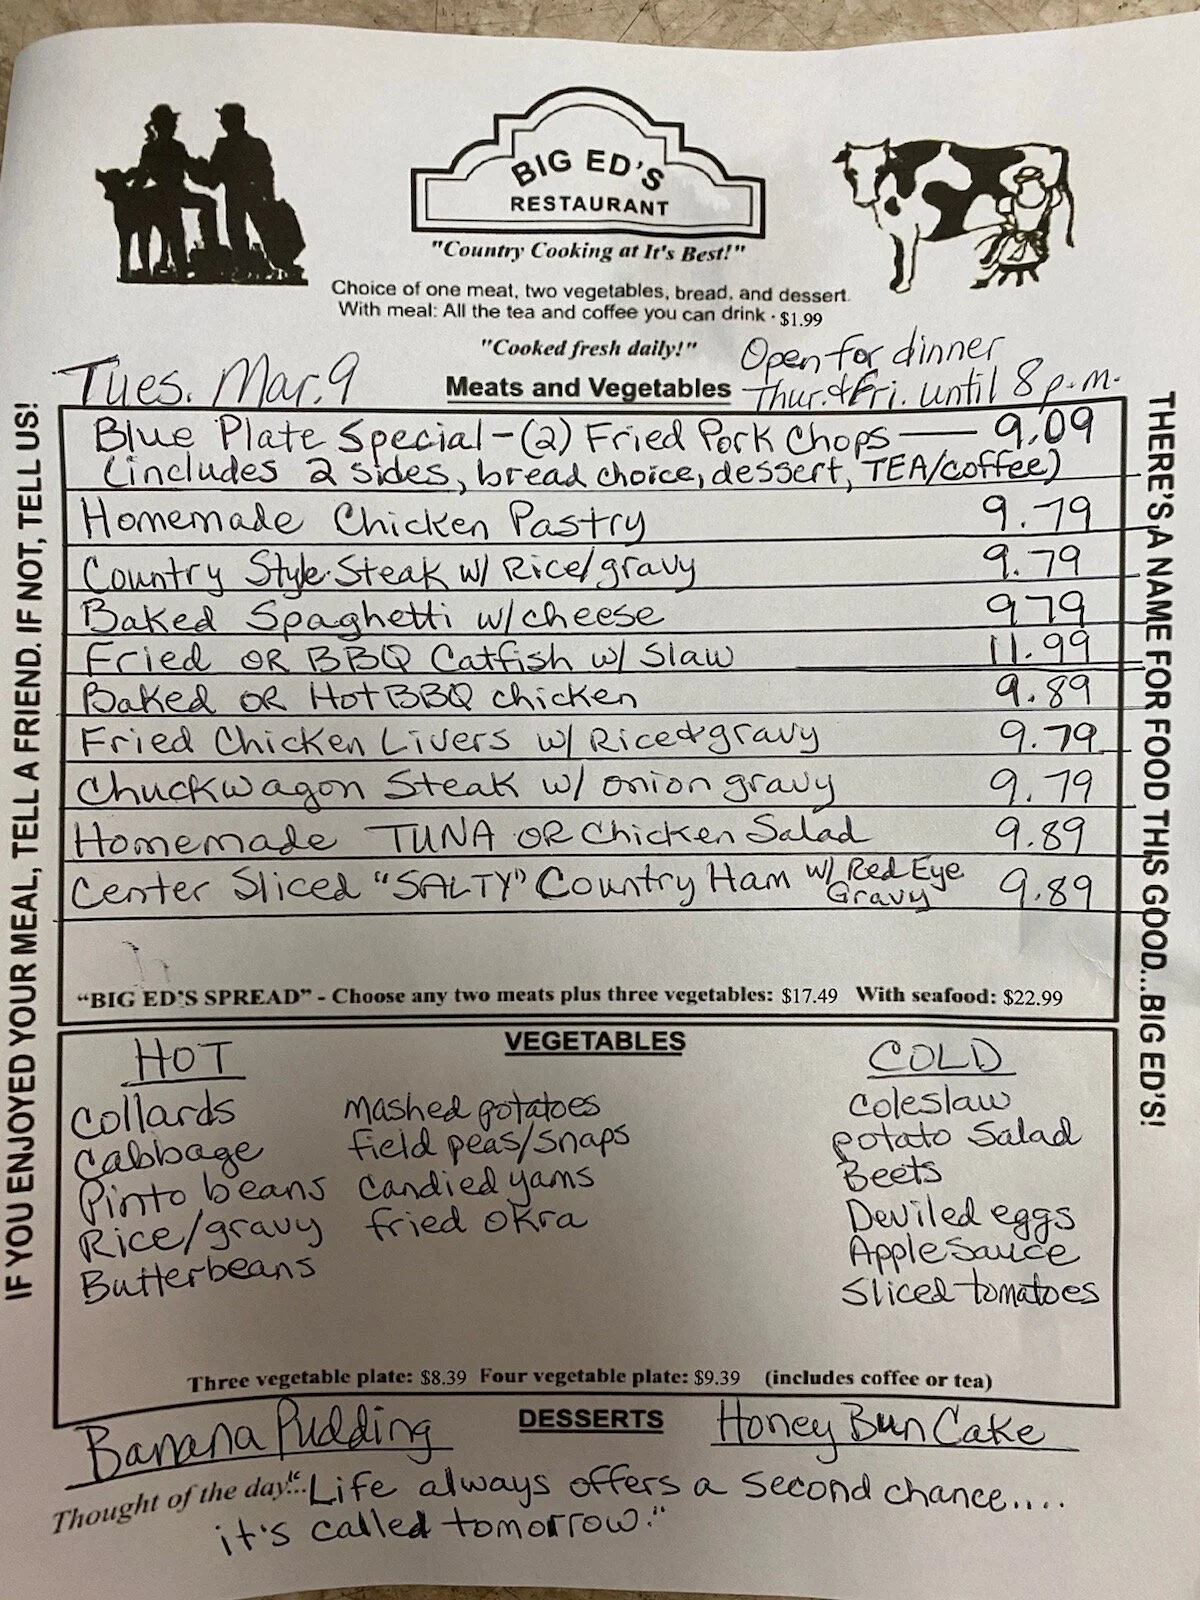 BIG ED'S
RESTAURANT
"Country Cooking at It's Best!"
Choice of one meat, two vegetables, bread, and dessert.
With meal: All the tea and coffee you can drink · $1.99
"Cooked fresh daily!"
Open for dinner
Thur. & Fri. until 8 p.m.
Tues. Mar. 9
Meats and Vegetables
Blue Plate Special - (2) Fried Pork Chops — 9.09
(includes 2 sides, bread choice, dessert, TEA/coffee)
Homemade Chicken Pastry 9.79
Country Style Steak w/ Rice/gravy 9.79
Baked Spaghetti w/cheese 9.79
Fried OR BBQ Catfish w/ Slaw 11.99
Baked OR Hot BBQ chicken 9.89
Fried Chicken Livers w/ Rice & gravy 9.79
Chuckwagon Steak w/ onion gravy 9.79
Homemade TUNA OR Chicken Salad 9.89
Center Sliced "SALTY" Country Ham w/ Red Eye Gravy 9.89
"BIG ED'S SPREAD" - Choose any two meats plus three vegetables: $17.49 With seafood: $22.99
VEGETABLES
HOT
Collards
Cabbage
Pinto beans
Rice/gravy
Butterbeans
mashed potatoes
field peas/snaps
candied yams
fried okra
COLD
coleslaw
potato salad
Beets
Deviled eggs
Applesauce
Sliced tomatoes
Three vegetable plate: $8.39 Four vegetable plate: $9.39 (includes coffee or tea)
DESSERTS
Banana Pudding
Honey Bun Cake
Thought of the day... "Life always offers a second chance....
it's called tomorrow."
IF YOU ENJOYED YOUR MEAL, TELL A FRIEND. IF NOT, TELL US!
THERE'S A NAME FOR FOOD THIS GOOD...BIG ED'S!